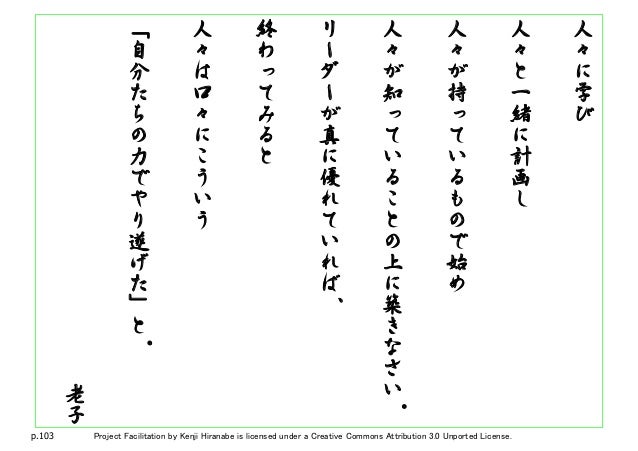 人々に学び
人々と一緒に計画し
人々が持っているもので始め
人々が知っていることの上に築きなさい。
リーダーが真に優れていれば、
終わってみると
人々は口々にこういう
「自分たちの力でやり遂げた」と。
老子
p.103 Project Facilitation by Kenji Hiranabe is licensed under a Creative Commons Attribution 3.0 Unported License.